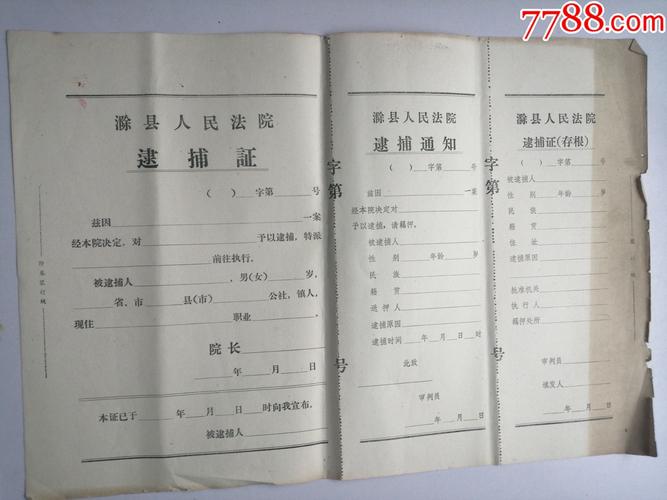 7788.com
滁县人民法院
逮捕証
( )字第 号
兹因 一案
经本院决定，对 予以逮捕，特派
前往执行。
被逮捕人 ，男(女) 岁，
省、市 县(市) 公社，镇人，
现住 职业 。
院长
年 月 日
本证已于 年 月 日 时向我宣布。
被逮捕人
字第 号
滁县人民法院
逮捕通知
( ) 字第 号
兹因 一案
经本院决定对
予以逮捕，请羁押。
被逮捕人
性别 年龄 岁
民族
籍贯
送押人
逮捕原因
逮捕时间 年 月 日 时
此致
审判员
年 月 日
字第 号
滁县人民法院
逮捕证(存根)
( ) 字第 号
被逮捕人
性别 年龄 岁
民族
籍贯
住址
逮捕原因
批准机关
执行人
羁押处所
审判员
填发人
年 月 日